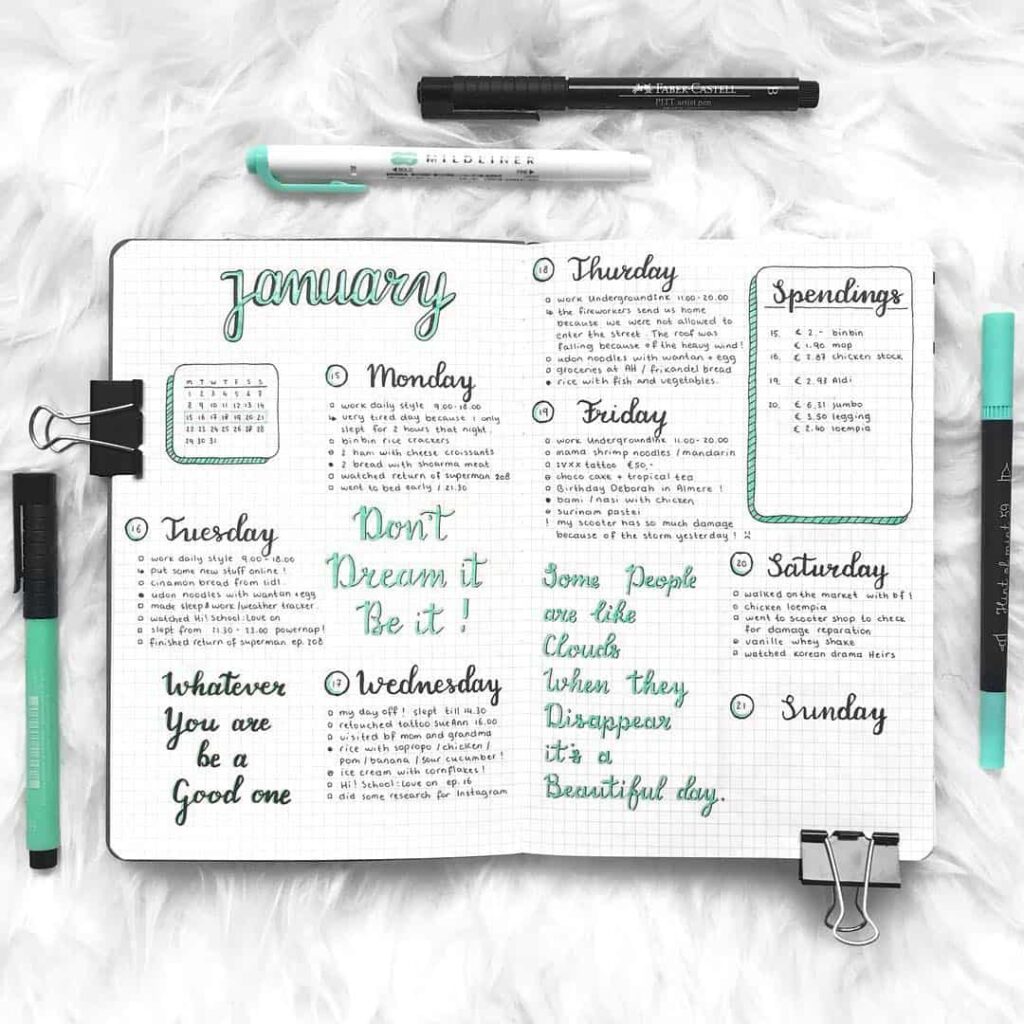 FABER-CASTELL
PITT artist pen
B
MILDLINER
january
M T W T F S S
1 2 3 4 5 6 7
8 9 10 11 12 13 14
15 16 17 18 19 20 21
22 23 24 25 26 27 28
29 30 31
15 Monday
work daily style 9.00-18.00
very tired day because I only
slept for 2 hours that night.
binbin rice crackers
2 ham with cheese croissants
2 bread with shoarma meat
watched return of superman 208
went to bed early / 21.30
16 Tuesday
work daily style 9.00-18.00
put some new stuff online!
cinamon bread from lidl.
udon noodles with wantan+egg
made sleep & work/weather tracker.
watched Hi! School:Love on
slept from 21.30 - 23.00 powernap!
finished return of superman ep. 208
Don't
Dream it
Be it!
Whatever
You are
be a
Good one
17 Wednesday
my day off! slept till 14.30
retouched tattoo SueAnn 16.00
visited bf mom and grandma
rice with sopropo/chicken/
pom/banana/sour cucumber!
ice cream with cornflakes!
Hi! School:Love on ep. 16
did some research for Instagram
18 Thurday
work UndergroundInk 11.00-20.00
the fireworkers send us home
because we were not allowed to
enter the street. The roof was
falling because of the heavy wind!
udon noodles with wantan + egg
groceries at AH / frikandel bread
rice with fish and vegetables.
19 Friday
work UndergroundInk 11.00-20.00
mama shrimp noodles / mandarin
svxx tattoo €50,-
choco cake + tropical tea
Birthday Deborah in Almere!
bami / nasi with chicken
surinam pastei
! my scooter has so much damage
because of the storm yesterday!
Some People
are like
Clouds
When they
Disappear
it's a
Beautiful day.
Spendings
15. € 2.- binbin
€ 1.90 mop
16. € 2.87 chicken stock
19. € 2.93 Aldi
20. € 6,31 jumbo
€ 3,50 legging
€ 2.60 loempia
20 Saturday
walked on the market with bf!
chicken loempia
went to scooter shop to check
for damage reparation
vanille whey shake
watched korean drama Heirs
21 Sunday
Hint of mint 59